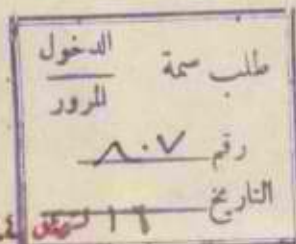 طلب سمة الدخول
المرور
رقم ٨٠٧
التاريخ ١٦